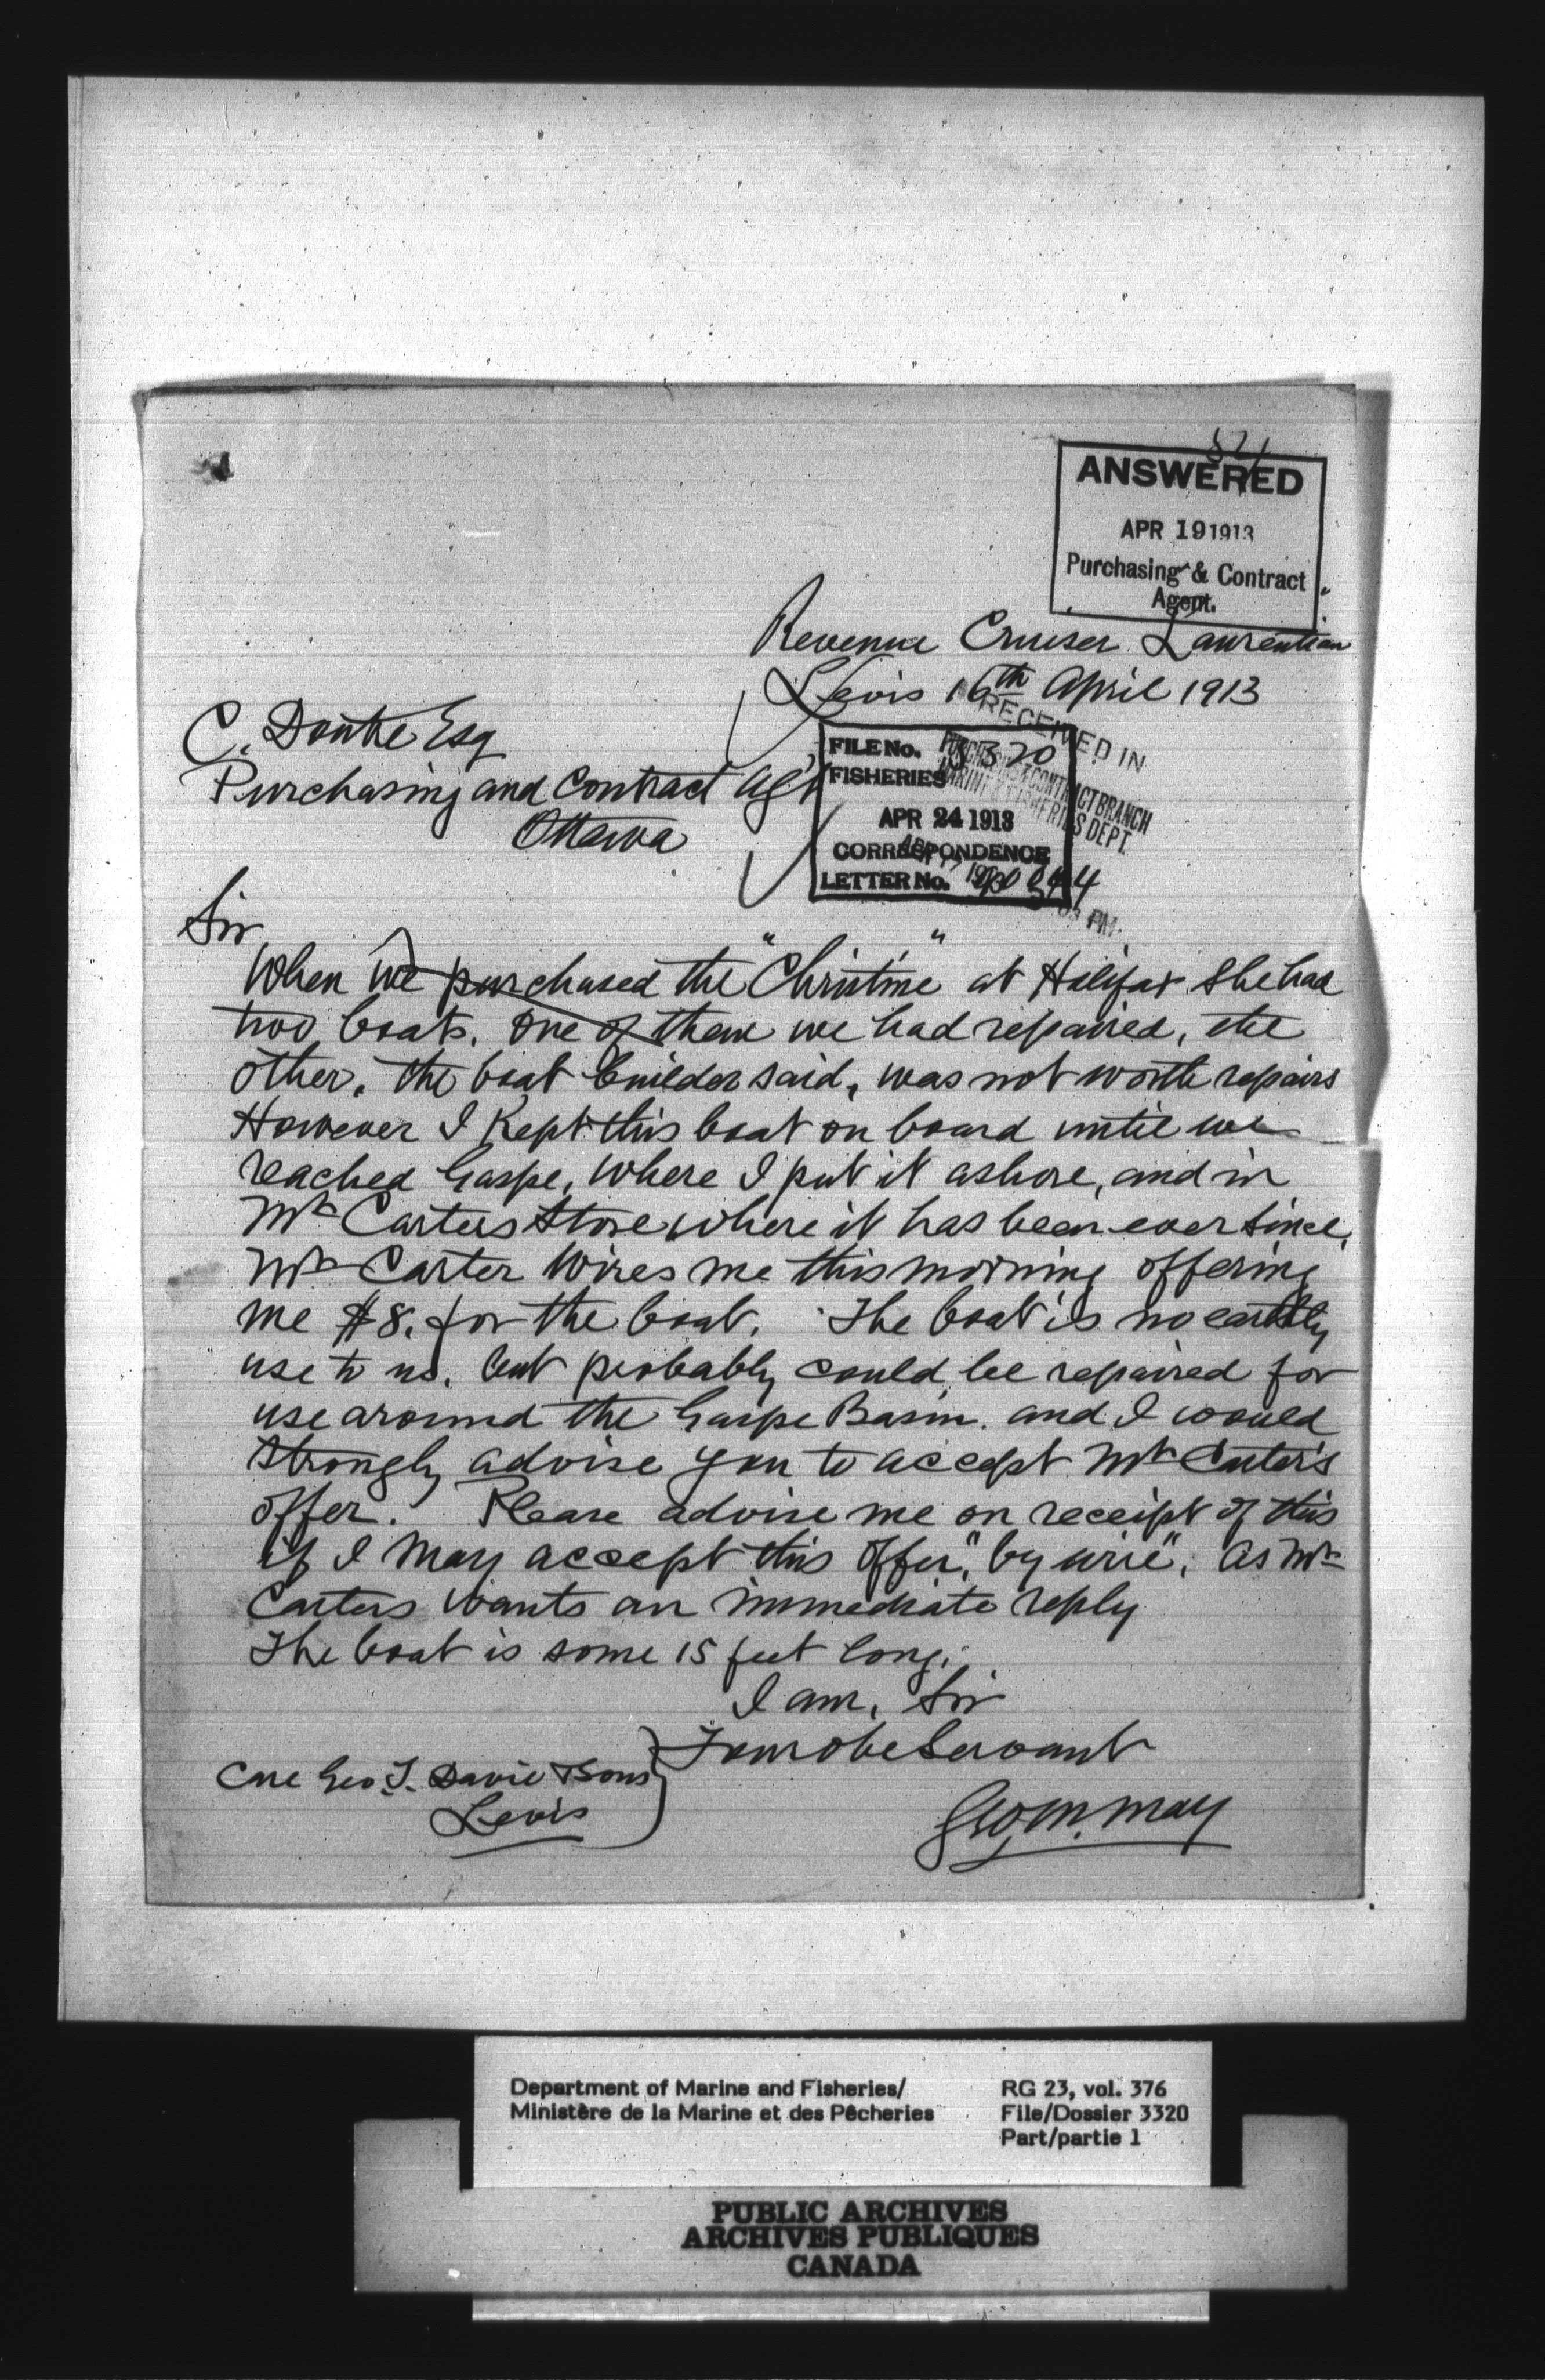 ANSWERED
APR 19 1913
Purchasing & Contract
Agent.
Revenue Cruiser Laurentian
Levis 16th April 1913
RECEIVED IN
PURCHASING & CONTRACT BRANCH
MARINE & FISHERIES DEPT.
C. Doutre Esq
Purchasing and Contract Agt
Ottawa
FILE No. 3320
FISHERIES
APR 24 1913
CORRESPONDENCE
LETTER No.
Sir
When we purchased the "Christine" at Halifax she had
two boats. One of them we had repaired, the
other, the boat builder said, was not worth repairs
However I Kept this boat on board until we
reached Gaspe, where I put it ashore, and in
Mr Carters Store where it has been ever since.
Mr Carter Wires me this morning offering
me $8. for the boat. The boat is no earthly
use to us, but probably could be repaired for
use around the Gaspe Basin. and I would
strongly advise you to accept Mr Carter's
offer. Please advise me on receipt of this
if I may accept this offer, "by wire", as Mr
Carters wants an immediate reply
The boat is some 15 feet long.
I am, Sir
Your obe Servant
Care Geo. T. Davie & Sons
Levis
Geo. M. May
Department of Marine and Fisheries/
Ministère de la Marine et des Pêcheries
RG 23, vol. 376
File/Dossier 3320
Part/partie 1
PUBLIC ARCHIVES
ARCHIVES PUBLIQUES
CANADA